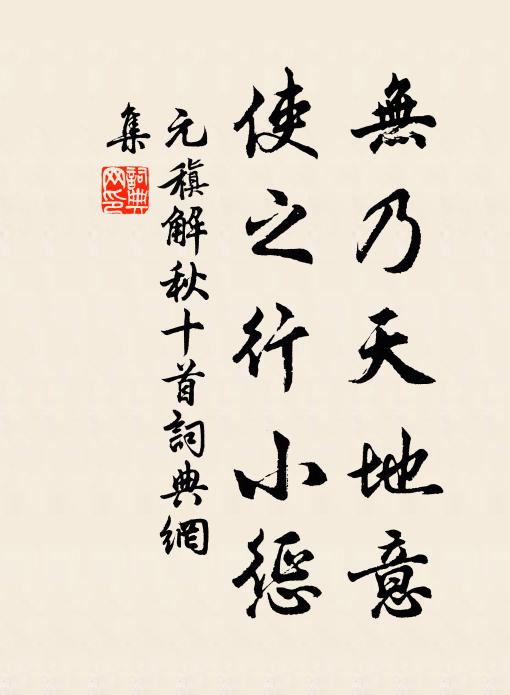 無乃天地意
使之行小懲
元稹解秋十首詞典網
集
詞典網印